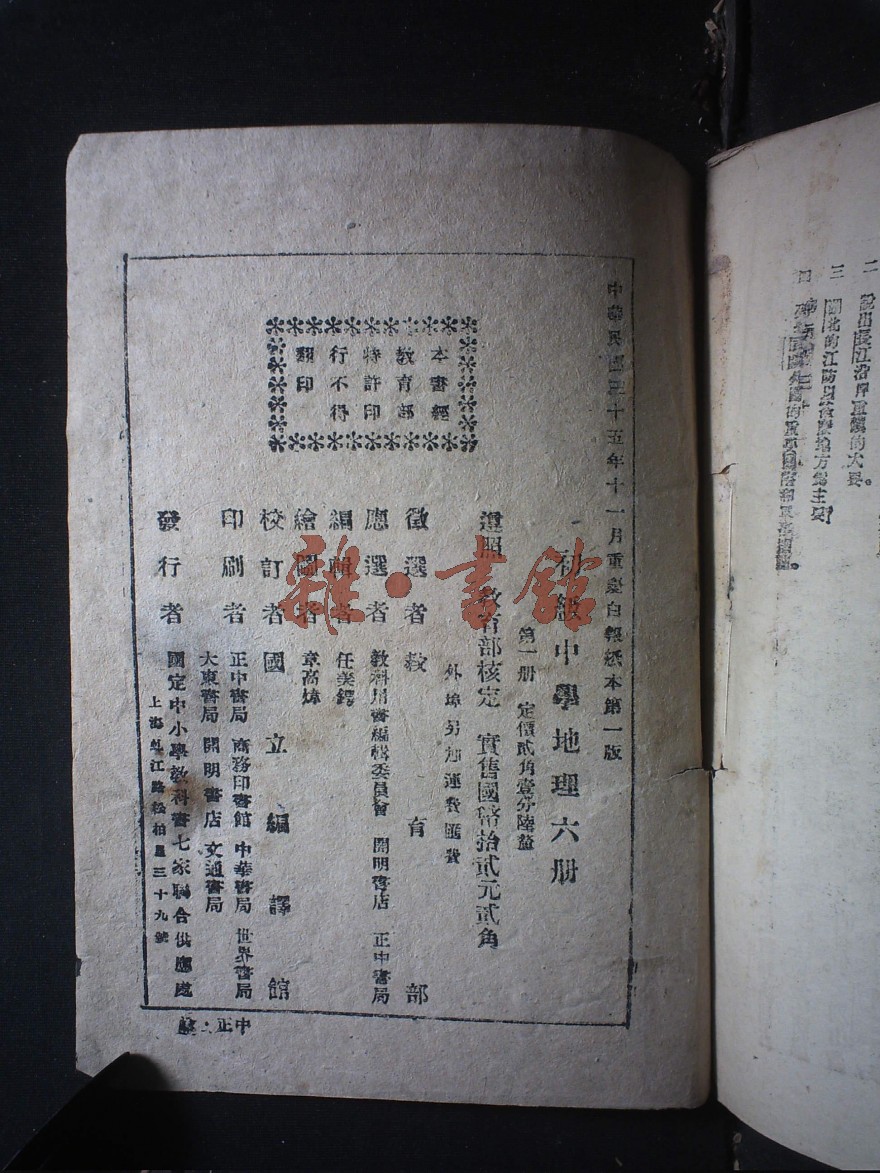 中華民國三十五年十一月重慶白報紙本第一版
初級中學地理六册
第一册 定價貳角壹分陸釐
遵照 教育部核定 實售國幣拾貳元貳角
外埠另加運費匯費
本書經
教育部
特許印
行不得
翻印
徵選者 教育部
應選者 教科用書編輯委員會 開明書店 正中書局
編輯者 任美鍔
繪圖者 章高煒
校訂者 國立編譯館
印刷者 正中書局 商務印書館 中華書局 世界書局
大東書局 開明書店 文通書局
發行者 國定中小學教科書七家聯合供應處
上海虬江路松柏里三十九號
正中
雜·書館
二 說出長江沿岸重鎮的大要。
三 的江防
四